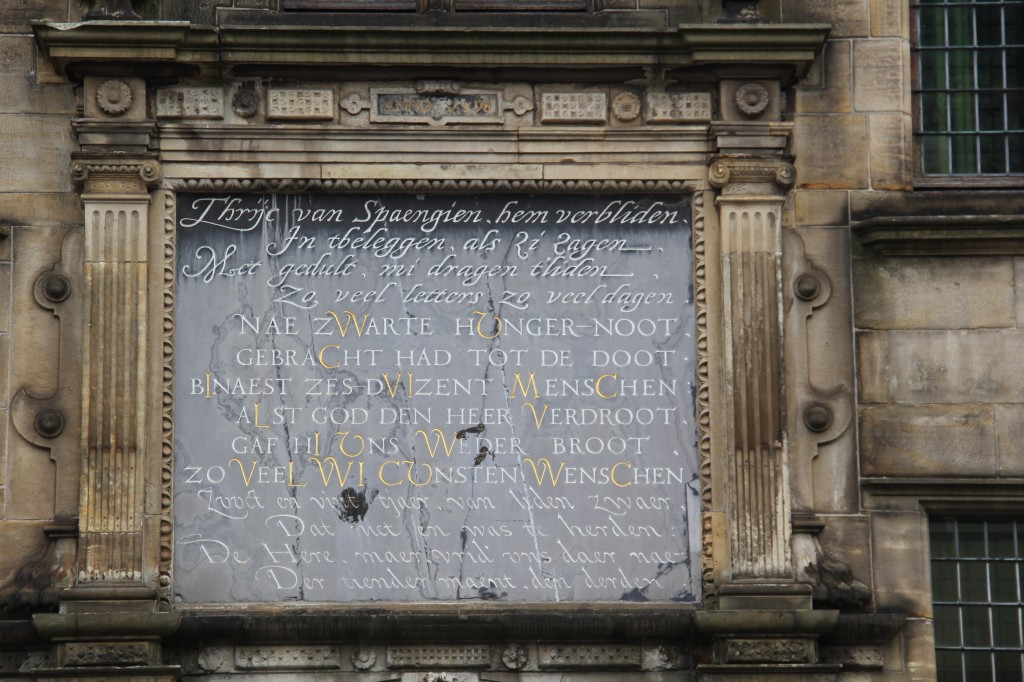 Thrijc van Spaengien, hem verbliden,
In tbeleggen, als Zi Zagen
Met gedult, mi dragen tliden
Zo veel letters zo veel dagen.
NAE ZWARTE HUNGER-NOOT.
GEBRACHT HAD TOT DE DOOT.
BINAEST ZES-DVIZENT MENSCHEN:
ALST GOD DEN HEER VERDROOT.
GAF HI UNS WEDER BROOT.
ZO VEEL WI CUNSTEN WENSCHEN
en van liden zwaer,
Dat met en was te herden
De Here, maer uns daer nae
Der tiender maent, den derden